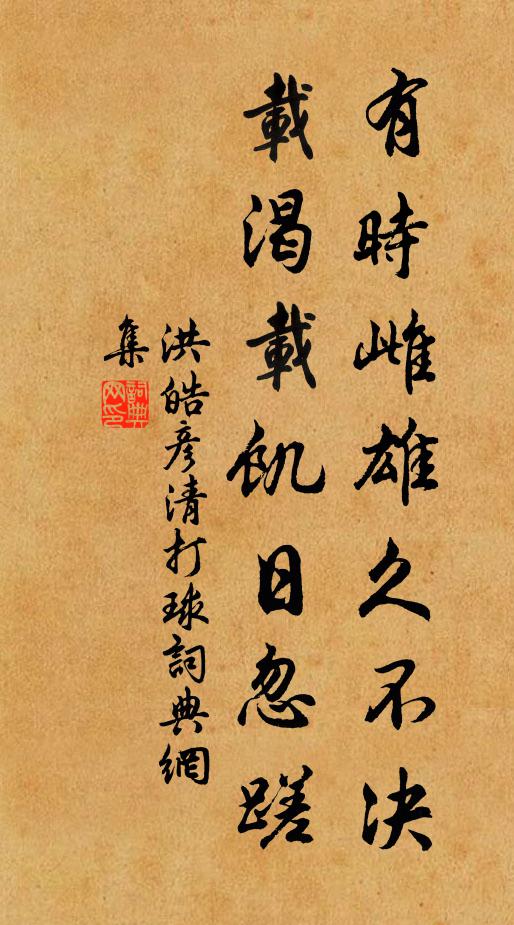 有時雌雄久不決
載渴載飢日忽蹉
洪皓彥清打球詞典網
集
詞典
网印